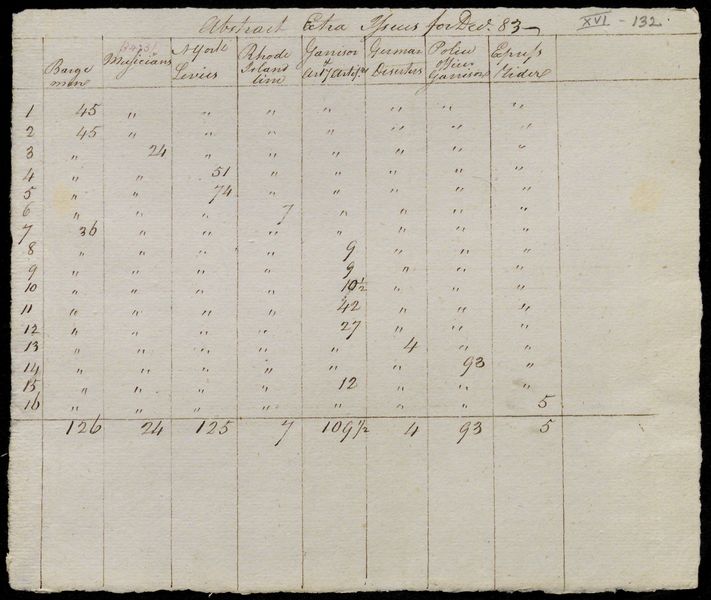 Abstract Extra Issues for Decr. 83
XVI - 132
Barge men | Musicians | N York Levies | Rhode Island line | Garrison | German Deserters | Police Officer Garrison | Express Rider
1 45 " " " " " " "
2 45 " " " " " " "
3 " 24 " " " " " "
4 " " 51 " " " " "
5 " " 74 " " " " "
6 " " " 7 " " " "
7 36 " " " " " " "
8 " " " " 9 " " "
9 " " " " 9 " " "
10 " " " " 10½ " " "
11 " " " " 42 " " "
12 " " " " 27 " " "
13 " " " " " 4 " "
14 " " " " " " 93 "
15 " " " " 12 " " "
16 " " " " " " " 5
126 24 125 7 109½ 4 93 5